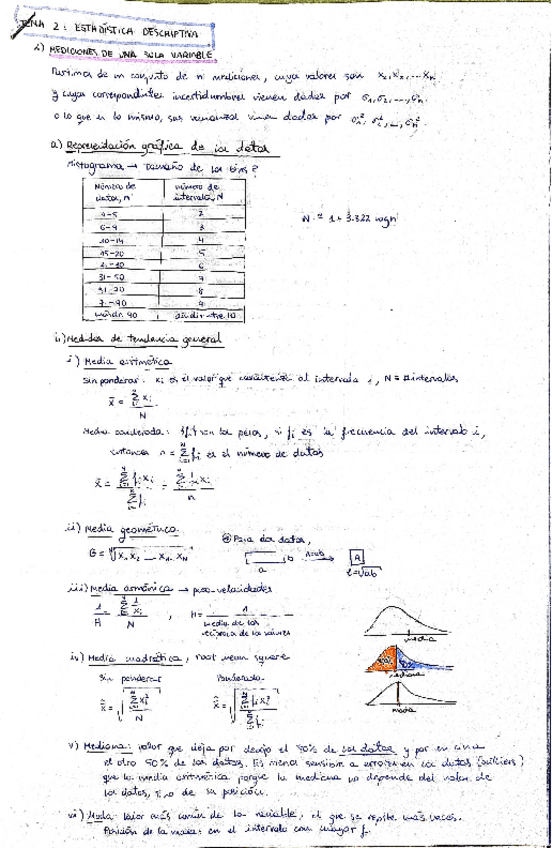 TEMA 2: ESTADÍSTICA DESCRIPTIVA
MEDICIONES DE UNA SOLA VARIABLE
Partimos de un conjunto de n mediciones, cuyos valores son x₁, x₂, ... xₙ
y cuyas correspondientes incertidumbres vienen dadas por σ₁, σ₂, ..., σₙ
o lo que es lo mismo, sus varianzas vienen dadas por σ₁², σ₂², ..., σₙ².
a) Representación gráfica de los datos
Histograma → tamaño de los bins?
Número de datos, n | número de intervalos, N
2
6-9 | 3
10-14 | 4
15-20 | 5
6
31-50 | 7
8
9
añadir otro 10
N = 1 + 3.322 log n
ii) Medidas de tendencia general
i) Media aritmética
Sin ponderar: xᵢ es el valor que caracteriza al intervalo i, N = # intervalos
x̄ = Σ xᵢ / N
Media ponderada: son los pesos, si fᵢ es la frecuencia del intervalo i,
entonces n = Σ fᵢ es el número de datos
x̄ = Σ fᵢ xᵢ / Σ fᵢ = Σ fᵢ xᵢ / n
ii) Media geométrica
G = ᴺ√x₁ x₂ ... xN
Para dos datos,
a b A=ab A
l=√ab
iii) Media armónica → para velocidades
1/H = Σ 1/xᵢ / N , H = 1 / media de los recíprocos de los valores
media
iv) Media cuadrática, root mean square
Sin ponderar Ponderada
x̄ = √(Σ xᵢ² / N) x̄ = √(Σ fᵢ xᵢ² / Σ fᵢ)
50% 50%
mediana
moda
v) Mediana: valor que deja por debajo el 50% de los datos y por encima
el otro 50% de los datos. Es menos sensible a errores en los datos (outliers)
que la media aritmética porque la mediana no depende del valor de
los datos, sino de su posición.
vi) Moda: valor más común de la variable, el que se repite más veces.
Posición de la moda: en el intervalo con mayor f.